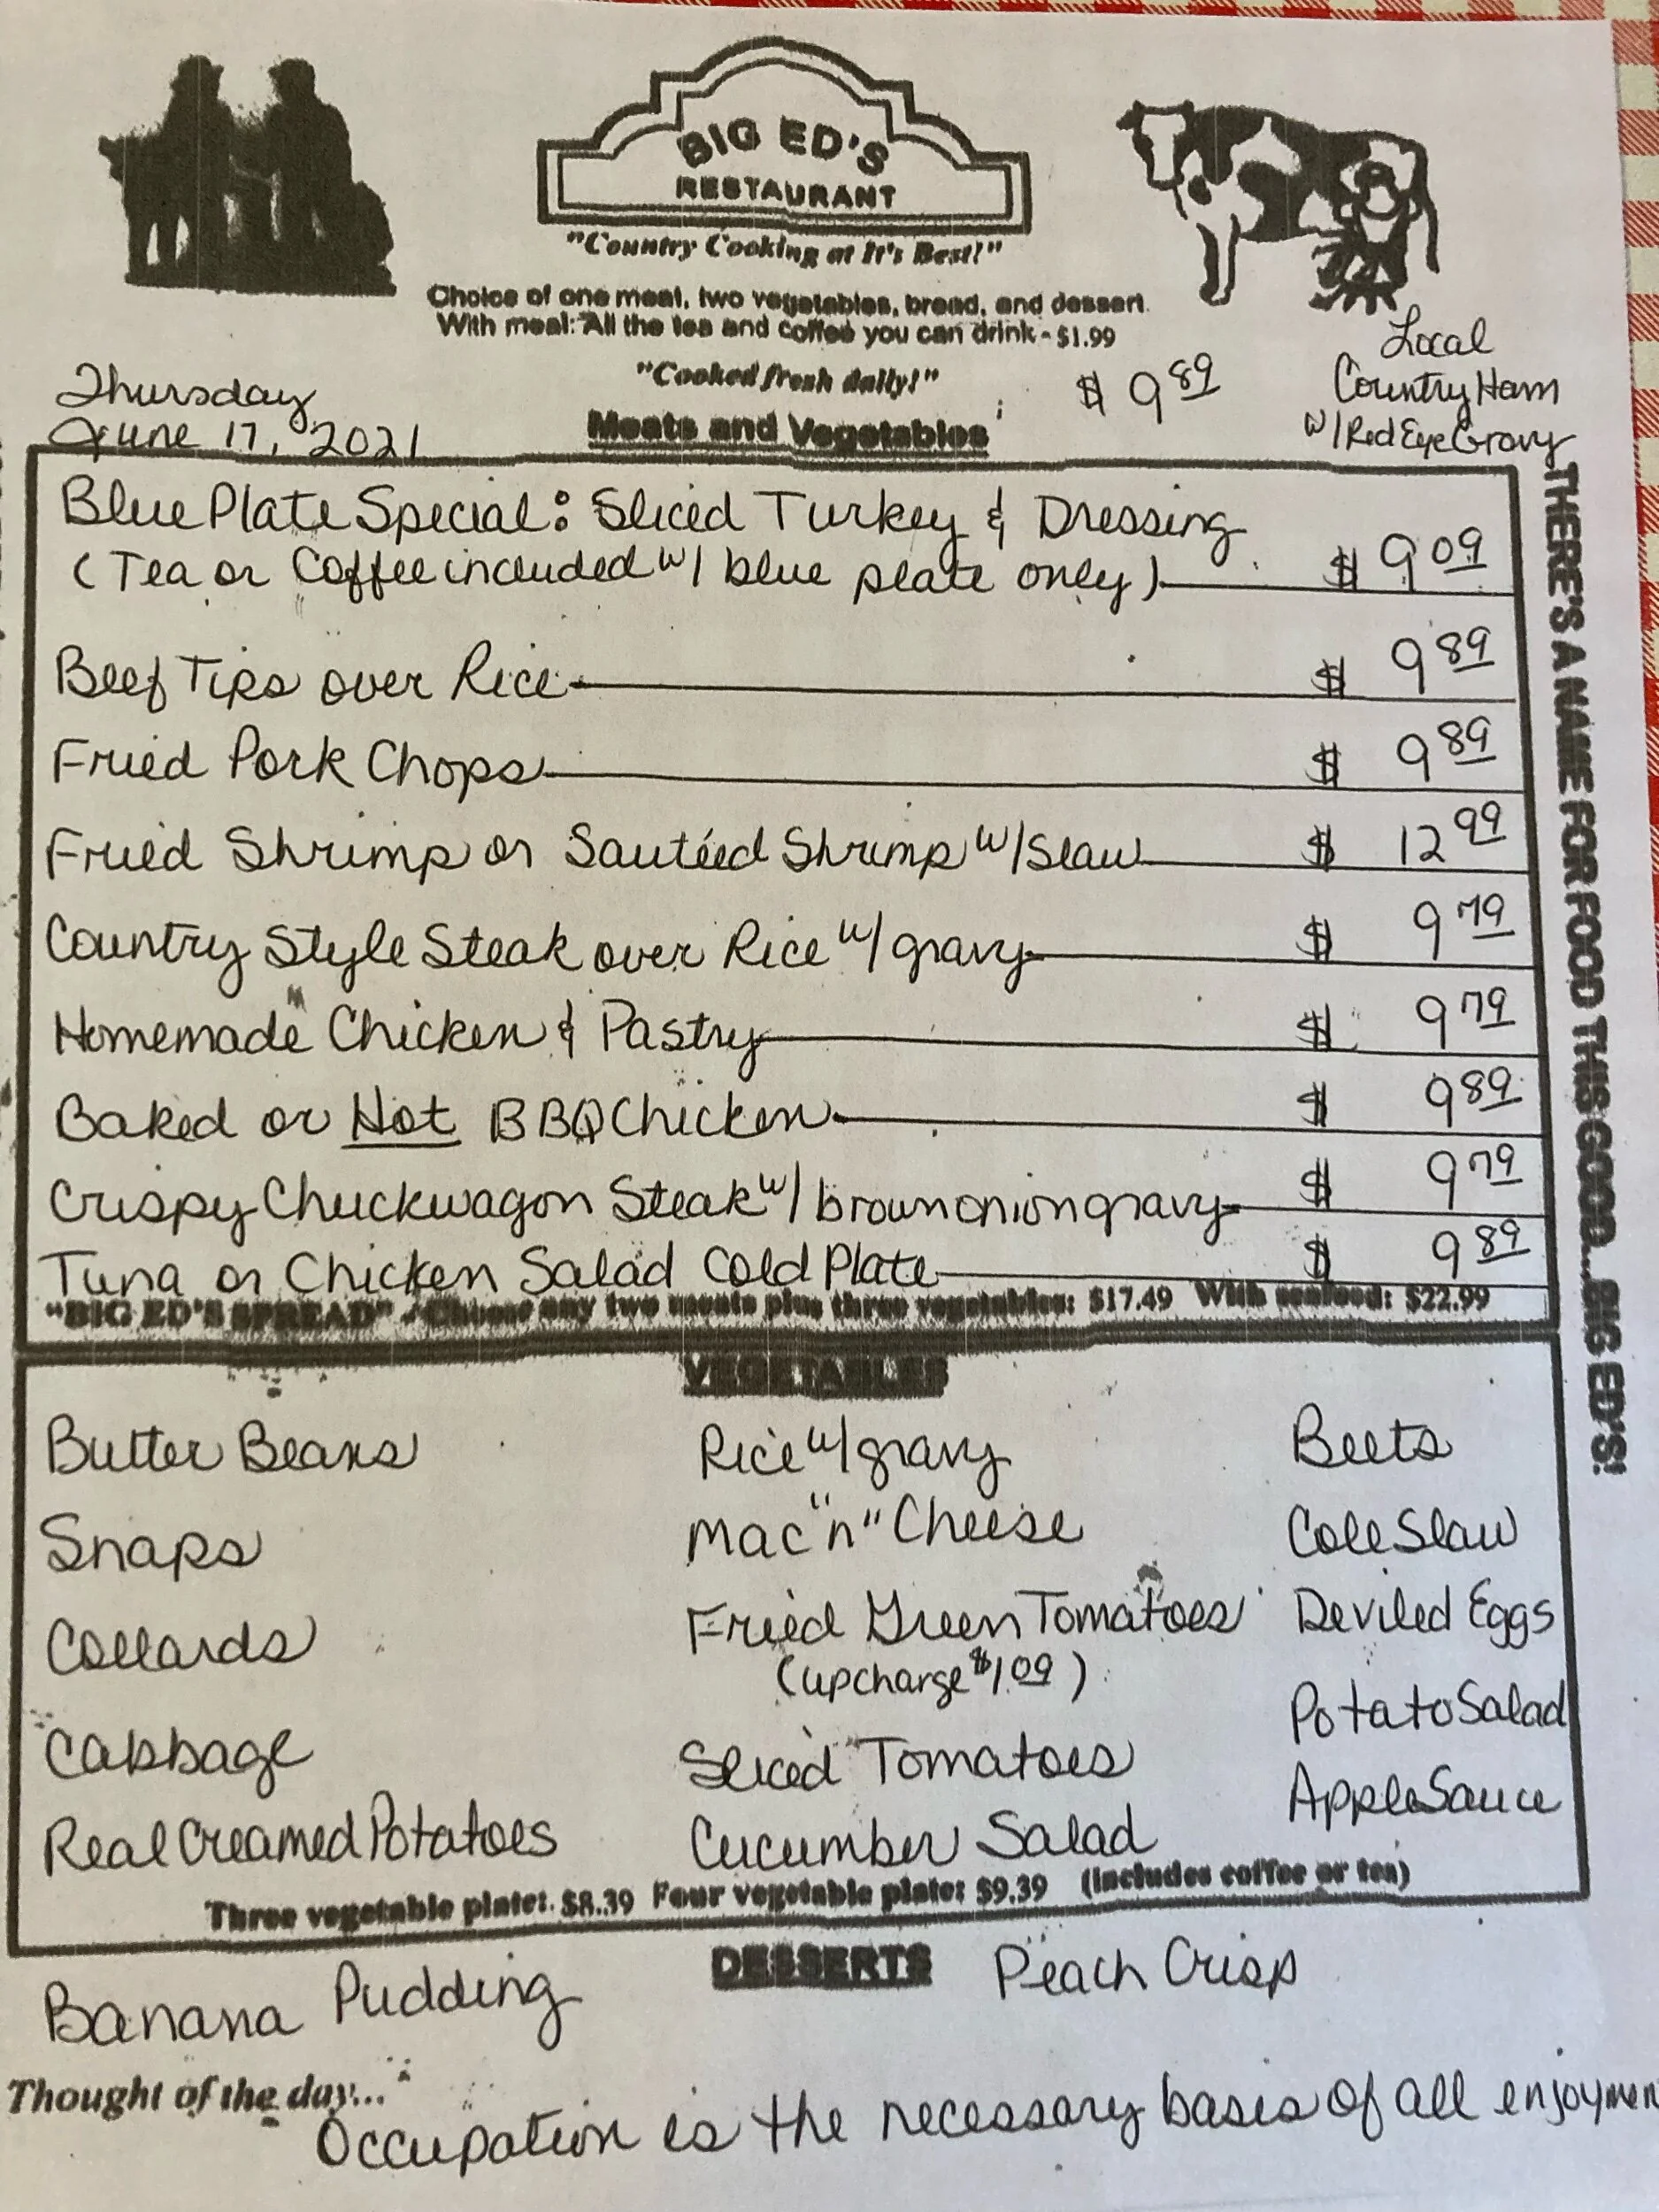 BIG ED'S
RESTAURANT
"Country Cooking at It's Best!"
Choice of one meat, two vegetables, bread, and dessert.
With meal: All the tea and coffee you can drink - $1.99
"Cooked fresh daily!"
$ 9.89
Local
Country Ham
w/ Red Eye Gravy
Thursday
June 17, 2021
Meats and Vegetables
Blue Plate Special: Sliced Turkey & Dressing
(Tea or Coffee included w/ blue plate only) $ 9.09
Beef Tips over Rice $ 9.89
Fried Pork Chops $ 9.89
Fried Shrimp or Sautéed Shrimp w/ Slaw $ 12.99
Country Style Steak over Rice w/ gravy $ 9.79
Homemade Chicken & Pastry $ 9.79
Baked or Hot BBQ Chicken $ 9.89
Crispy Chuckwagon Steak w/ brown onion gravy $ 9.79
Tuna or Chicken Salad Cold Plate $ 9.89
"BIG ED'S SPREAD" - Choose any two meats plus three vegetables: $17.49 With seafood: $22.99
THERE'S A NAME FOR FOOD THIS GOOD...BIG ED'S!
VEGETABLES
Butter Beans
Snaps
Collards
Cabbage
Real Creamed Potatoes
Rice w/ gravy
Mac "n" Cheese
Fried Green Tomatoes
(upcharge $1.09)
Sliced Tomatoes
Cucumber Salad
Beets
Cole Slaw
Deviled Eggs
Potato Salad
Apple Sauce
Three vegetable plate: $8.39 Four vegetable plate: $9.39 (includes coffee or tea)
DESSERTS
Banana Pudding
Peach Crisp
Thought of the day...
Occupation is the necessary basis of all enjoymen